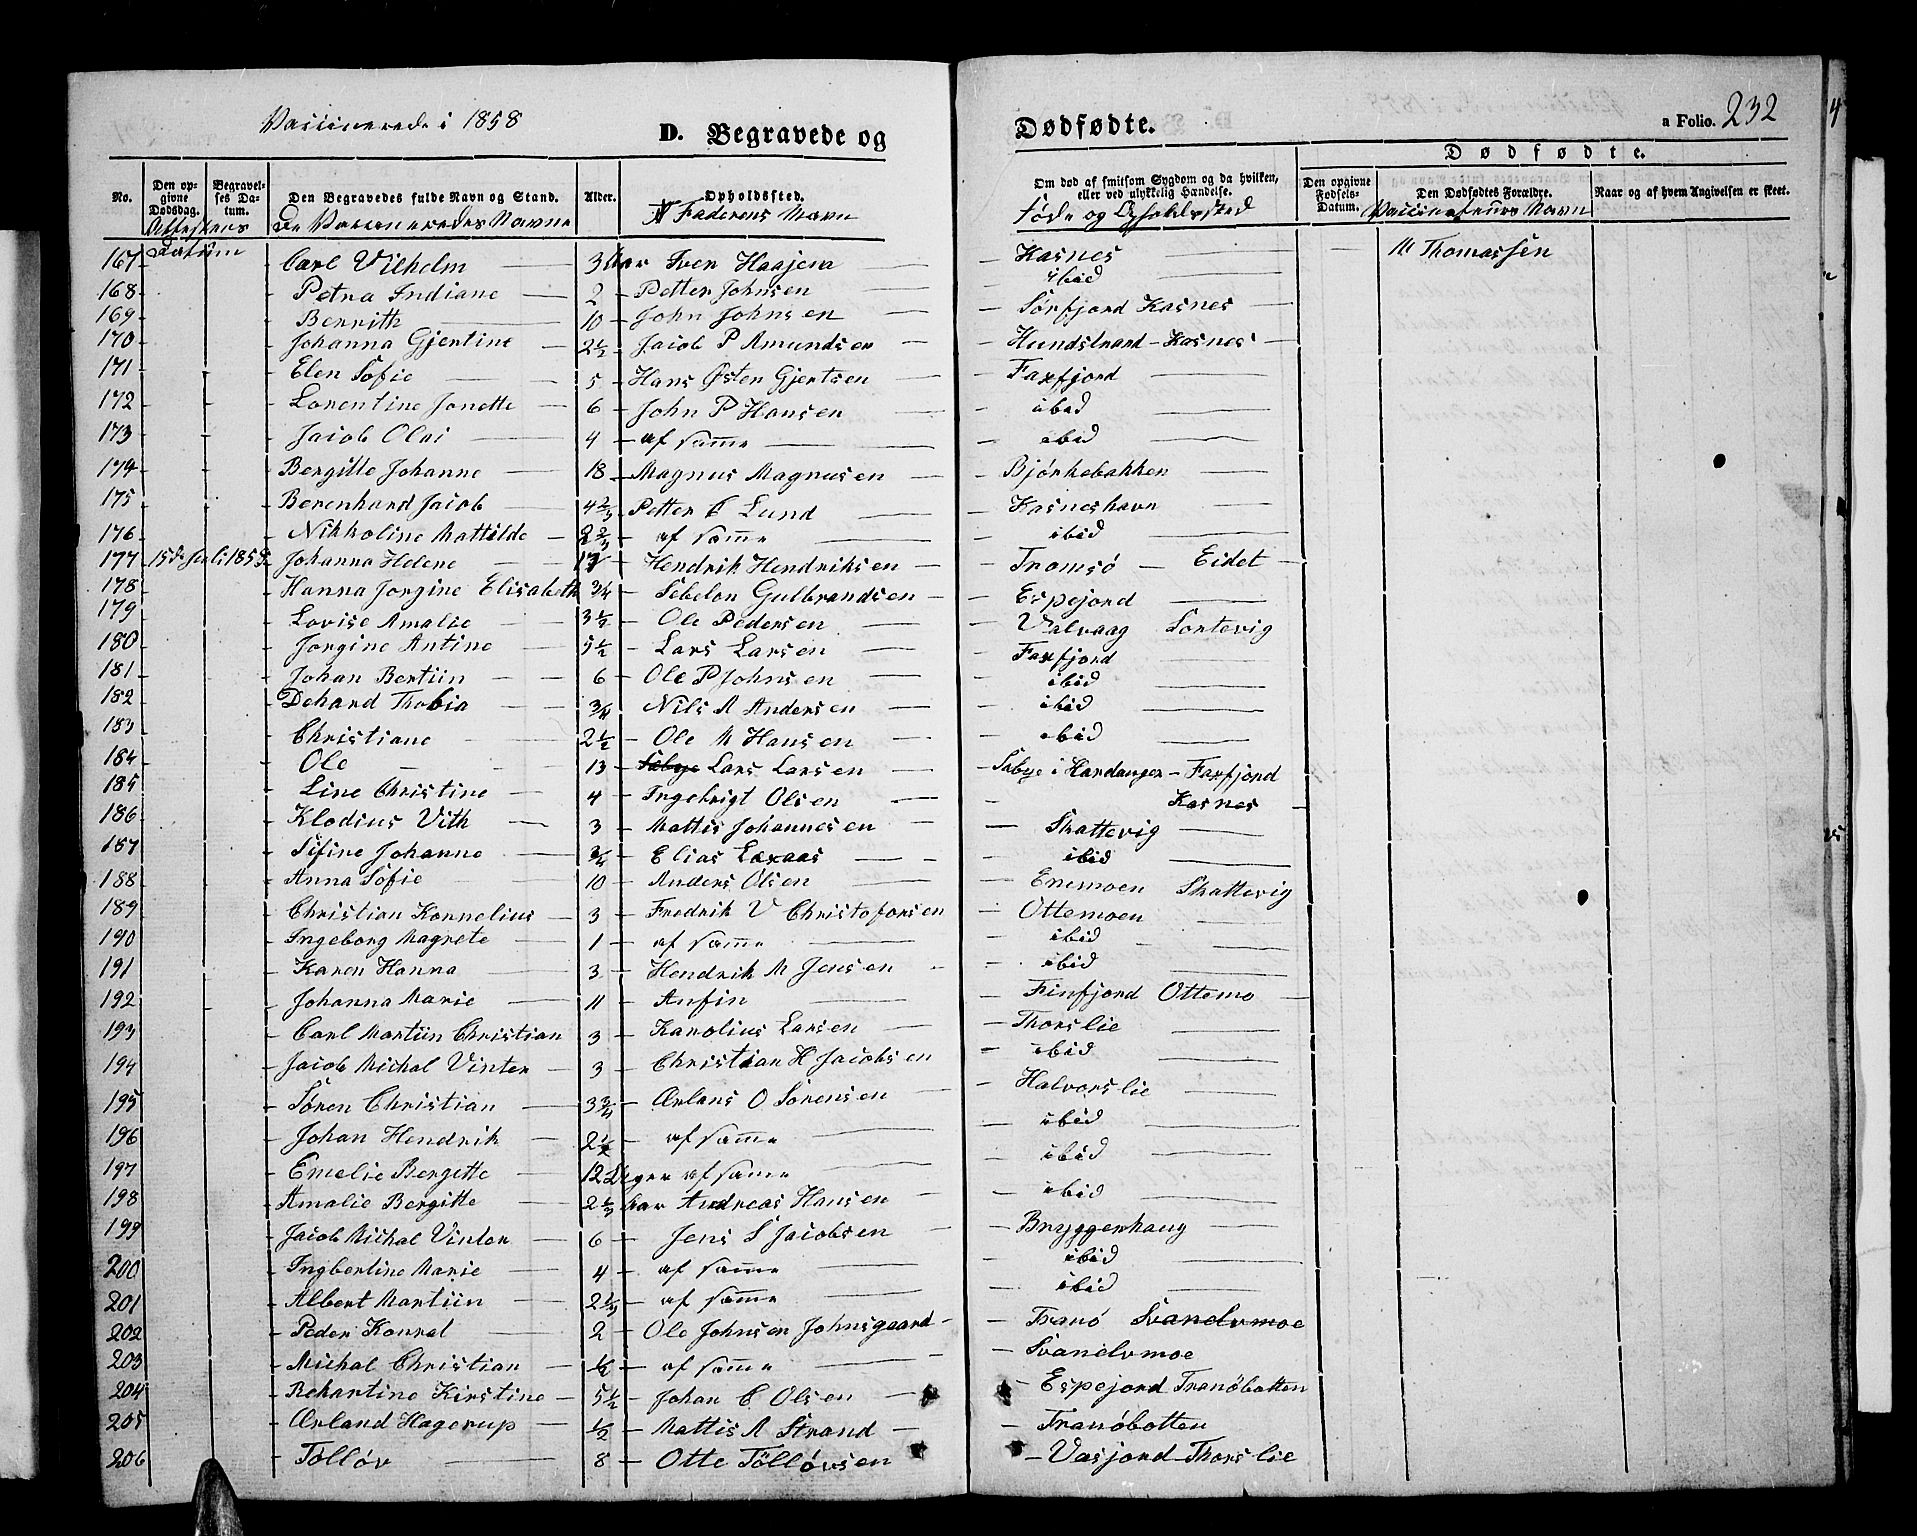 Vaccinerede i 1858
D. Begravede og
Dødfødte.
a Folio. 232
Dødfødte.
No.
Den opgivne Dødsdag.
Begravelses Datum.
Den Begravedes fulde Navn og Stand.
Alder.
Opholdssted.
Om død af smitsom Sygdom og da hvilken, eller ved ulykkelig Hændelse.
Den opgivne Fødsels-Datum.
Den Dødfødtes Forældre.
Naar og af hvem Angivelsen er skeet.
Attestens Datum
De Vaccineredes Navne
Faderens Navn
Føde og Opholdssted
Vaccinateurs Navn
167 Carl Vilhelm — 3 Aar Iver Haajen — Kasnes — M Thomassen
168 - Petra Indiane — 2 - Petter Johnsen — ibid
169 - Berrith — 10 - John Johnsen — Sørfjord Kasnes —
170 - Johanna Gjertine — 2½ - Jacob P Amundsen — Hundstrand - Kasnes -
171 - Elen Sofie — 5 - Hans Østen Gjertsen — Faxfjord —
172 - Lorentine Jonette — 6 - John P Hansen — ibid —
173 - Jacob Olai — 4 - af samme — ibid —
174 - Bergitte Johanne — 18 - Magnus Magnusen — Bjørkebakken —
175 - Berenhard Jacob — 4⅔ - Petter C Lund — Kasneshavn —
176 - Nikkoline Mattilde - 2⅔ - af samme — ibid —
177 15de Juli 1858 Johanna Helene — 17 - Hendrik Hendriksen — Tromsø — Eidet -
178 - Hanna Jorgine Elisabeth ¾ - Sebelon Gulbrandsen - Espejord —
179 - Lovise Amalie - 3½ - Ole Pedersen — Valvaag Lortevig
180 - Jorgine Antine - 5½ - Lars Larsen — Faxfjord —
181 - Johan Bertiin — 6 - Ole P Johnsen — ibid —
182 - Dehard Thobia — ¾ - Nils A Andersen — ibid —
183 - Christiane — 2½ - Ole M Hansen — ibid —
184 - Ole — 13 - Lars Larsen — Sabye i Hardanger - Faxfjord
185 - Line Christine — 4 - Ingebrigt Olsen — Kasnes -
186 - Klodius Vith — 3 - Mattis Johannesen — Skattevig —
187 - Sifine Johanne - ¾ - Elias Laxaas — ibid —
188 - Anna Sofie — 10 - Anders Olsen — Enemoen Skattevig
189 - Christian Kornelius - 3 - Fredrik V Christofersen - Ottemoen —
190 - Ingeborg Magrete — 1 - af samme — ibid —
191 - Karen Hanna — 3 - Hendrik M Jensen - ibid —
192 - Johanna Marie — 11 - Anfin — Finfjord Ottemo —
193 - Carl Martiin Christian 3 - Karolius Larsen — Thorslie —
194 - Jacob Michal Vinter - 3 - Christian H Jacobsen — ibid —
195 - Søren Christian — 3¾ - Ærlans O Sørensen — Halvorslie —
196 - Johan Hendrik — 2½ - af samme — ibid —
197 - Emelie Bergitte - 12 Uger af samme — ibid —
198 - Amalie Bergitte — 2½ Aar Andreas Hansen - ibid —
199 - Jacob Michal Vinter — 6 - Jens S Jacobsen — Bryggenhaug —
200 - Ingbertine Marie — 4 - af samme — ibid —
201 - Albert Martiin — 2½ - af samme — ibid —
202 - Peder Konral — 2 - Ole Johnsen Johnsgaard - Tranö Svanelvmoe
203 - Michal Christian — ½ - af samme — Svanelvmoe
204 - Rehartine Kirstine - 5½ - Johan C Olsen — Espejord Tranöbotten
205 - Ærland Hagerup — ½ - Mattis A Strand — Tranöbotten
206 - Tölløv — 8 - Otte Tölløvsen — Vasjord - Thorslie